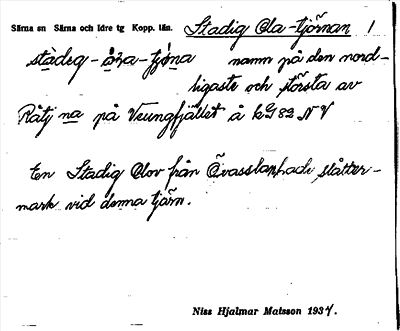 Särna sn Särna och Idre tg Kopp. län. Stadig Ola-tjörnan 1
städig-åla-tjóna namn på den nord-
ligaste och största av
Råtj na på Veungfjället å kG82 NV
En Stadig Olov från Övasslanhade slåtter-
mark vid denna tjärn.
Niss Hjalmar Matsson 1934.